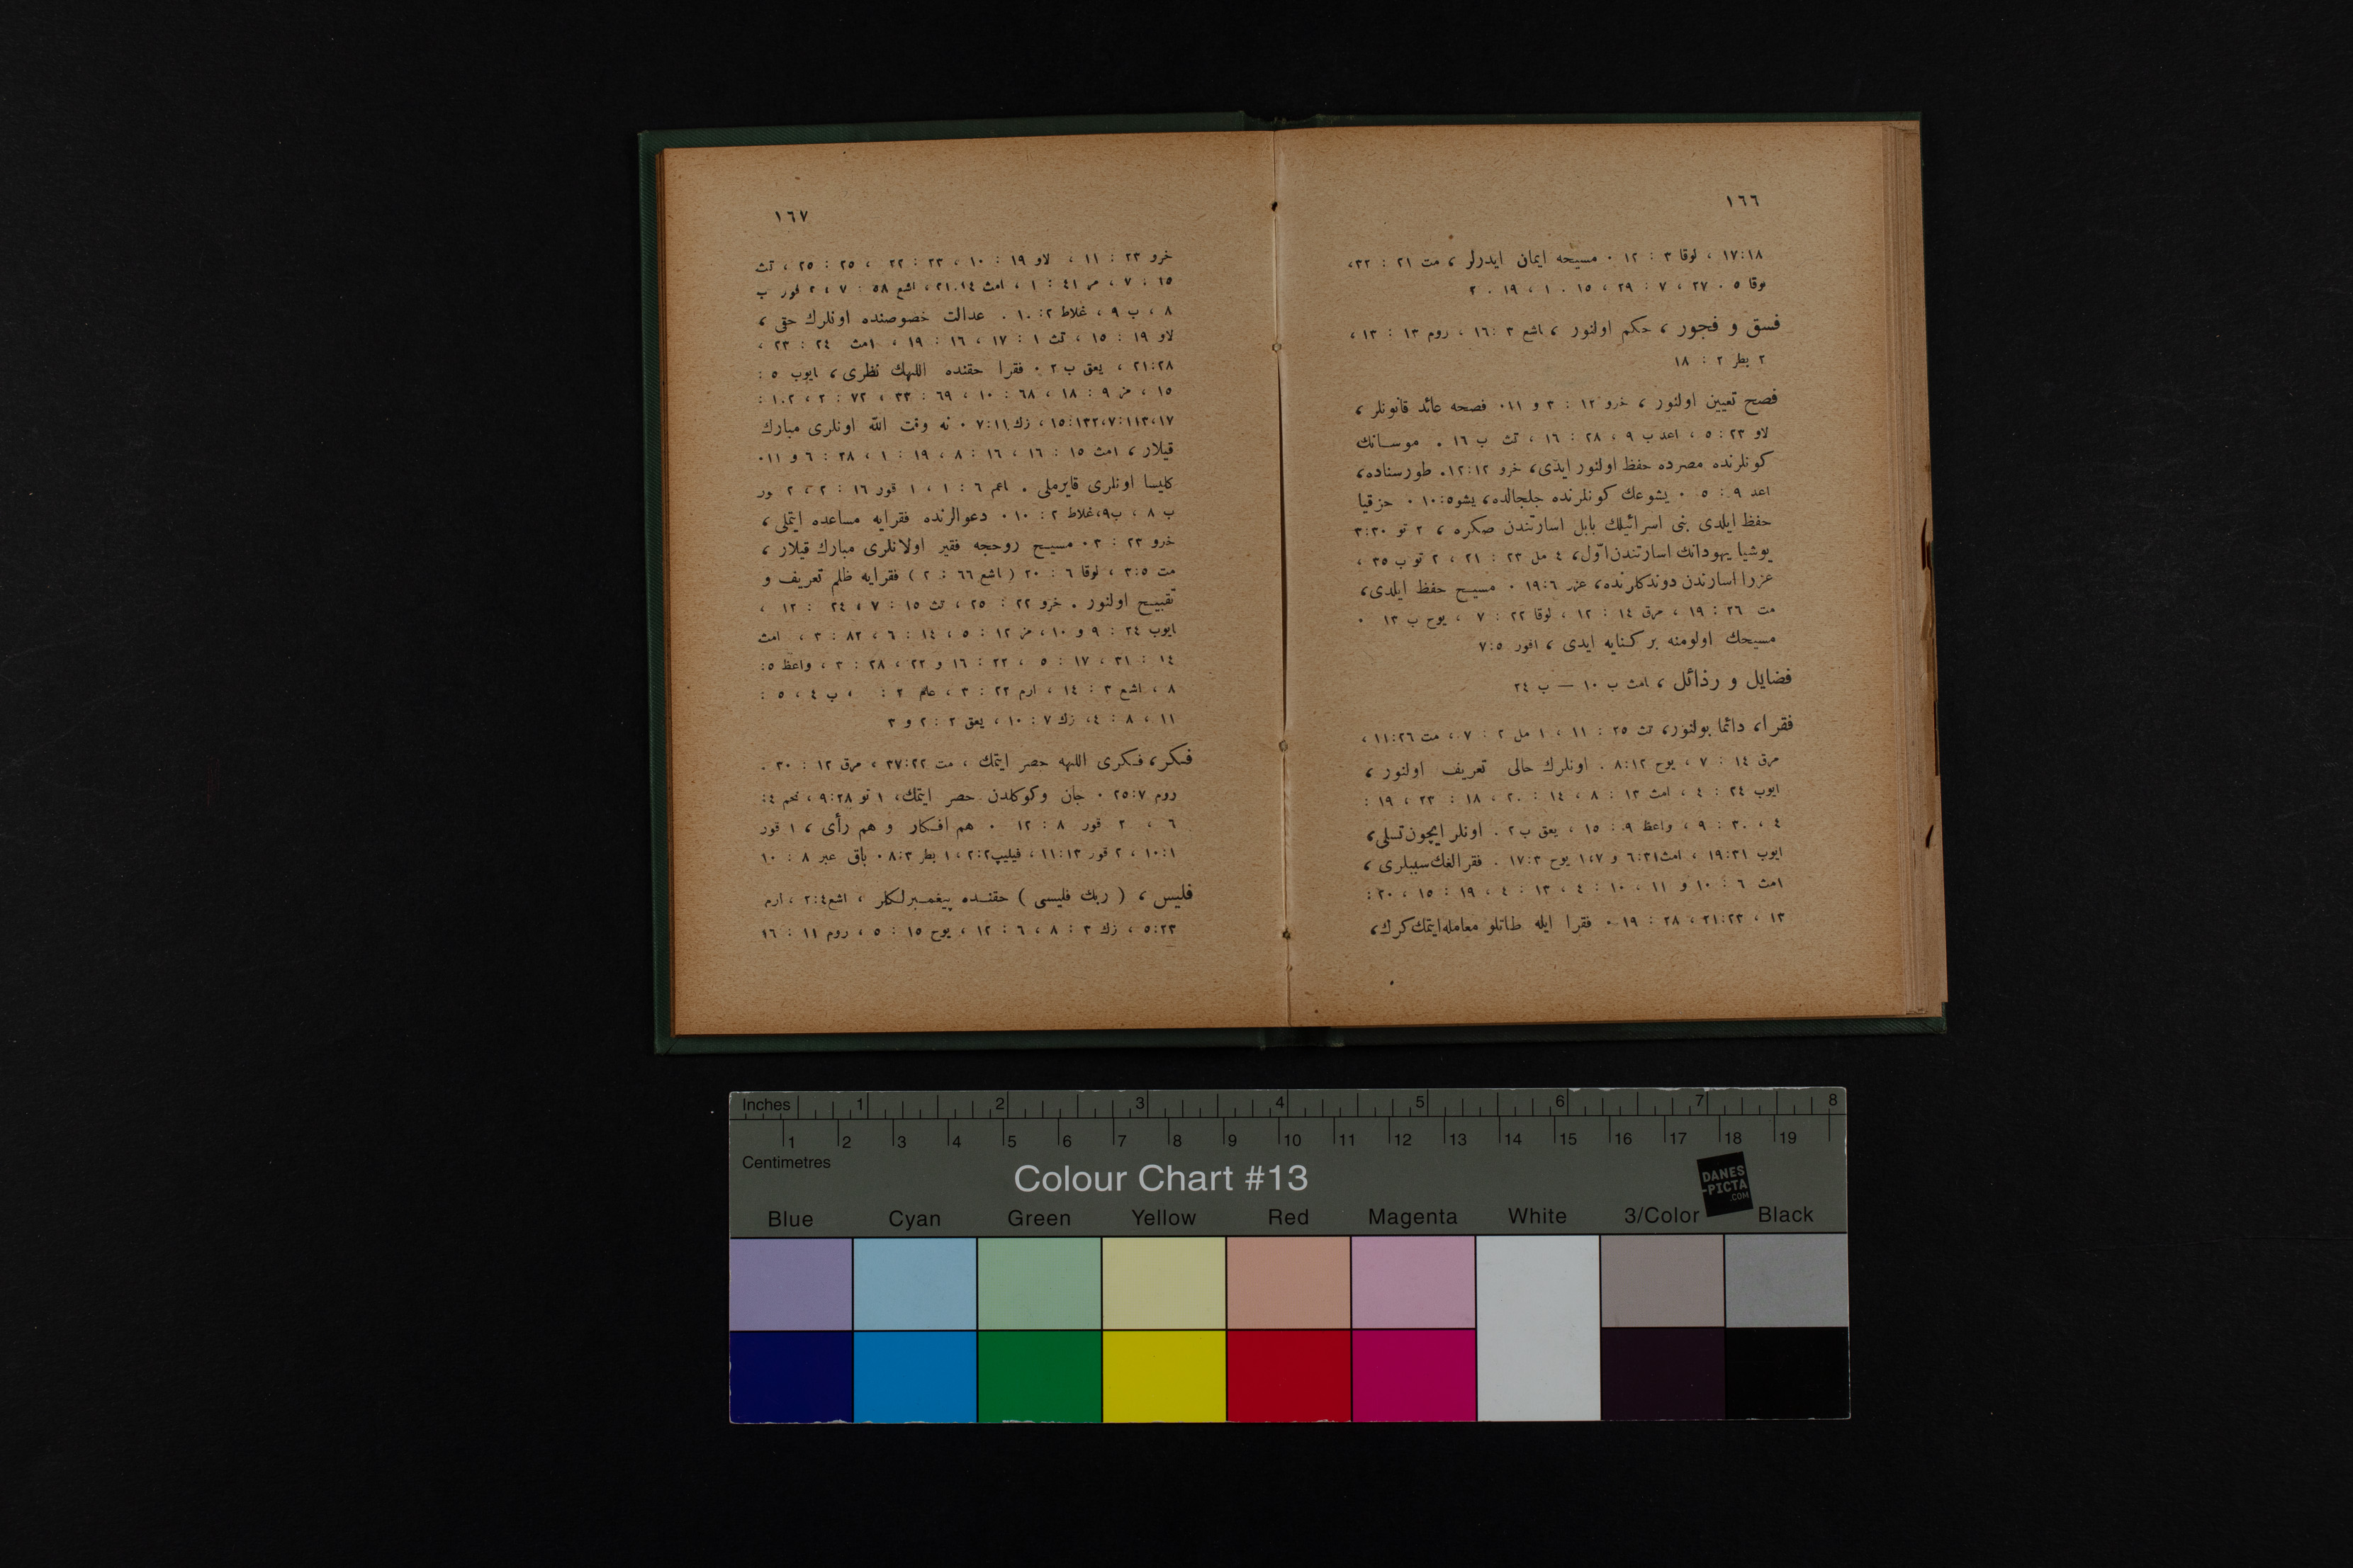 ١٦٦
١٧:١٨ ، لوقا ٣ : ١٢ ٠ مسيحه ايمان ايدرلر ، مت ٢١ : ٣٢،
لوقا ٥ ٠ ٢٧ ، ٧ : ٢٩ ، ١٥ ٠ ١ ، ١٩ ٠ ٢
فسق و فجور ، حكم اولنور ، اشع ٣ :١٦ ، روم ١٣ : ١٣ ،
٢ بطر ٢ : ١٨
فصح تعيين اولنور ، خرو ١٢ : ٣ و ١١٠ فصحه عائد قانونلر ،
لاو ٢٣ : ٥ ، اعد ب ٩ ، ٢٨ : ١٦ ، تث ب ١٦ ٠ موسانك
كونلرنده مصرده حفظ اولنور ايدى، خرو ١٢:١٢٠ طورسناده،
اعد ٩ : ٥ ٠ يشوعك كونلرنده جلجالده، يشو٥:١٠ ٠ حزقيا
حفظ ايلدى بنى اسرائيلك بابل اسارتندن صكره ، ٢ تو ٣:٣٠
يوشيا يهودانك اسارتندن اوّل، ٤ مل ٢٣ : ٢١ ، ٢ تو ب ٣٥ ،
عزرا اسارتدن دوندكلرنده، عزر ١٩:٦ ٠ مسيح حفظ ايلدى،
مت ٢٦ : ١٩ ، مرق ١٤ : ١٢ ، لوقا ٢٢ : ٧ ، يوح ب ١٣ ٠
مسيحك اولومنه بر كنايه ايدى ، اقور ٧:٥
فضايل و رذائل ، امث ب ١٠ — ب ٢٤
فقرا، دائما بولنور، تث ٢٥ : ١١ ، ١ مل ٢ : ٧ ، مت ١١:٢٦ ،
مرق ١٤ : ٧ ، يوح ٨:١٢ ٠ اونلرك حالى تعريف اولنور ،
ايوب ٢٤ : ٤ ، امث ١٣ : ٨ ، ١٤ : ٢٠ ، ١٨ : ٢٣ ، ١٩ :
٤ ، ٣٠ : ٩ ، واعظ ٩ : ١٥ ، يعق ب ٢ ٠ اونلر ايچون تسلى،
ايوب ١٩:٣١ ، امث٦:٣١ و ١،٧ يوح ١٧:٣ ٠ فقرالغك سببلرى ،
امث ٦ : ١٠ و ١١ ، ١٠ : ٤ ، ١٣ : ٤ ، ١٩ : ١٥ ، ٢٠ :
١٣ ، ٢١:٢٣ ، ٢٨ : ١٩ ٠ فقرا ايله طاتلو معامله ايتمك كرك،
١٦٧
خرو ٢٣ : ١١ ، لاو ١٩ : ١٠ ، ٢٣ : ٢٢ ، ٢٥ : ٢٥ ، تث
١٥ : ٧ ، مز ٤١ : ١ ، امث ٢١،١٤ ، اشع ٥٨ : ٧ ، ٢ قور ب
٨ ، ب ٩ ، غلاط ٢ :١٠ ٠ عدالت خصوصنده اونلرك حقى ،
لاو ١٩ : ١٥ ، تث ١ : ١٧ ، ١٦ : ١٩ ، امث ٢٤ : ٢٣ ،
٢١:٢٨ ، يعق ب ٢ ٠ فقرا حقنده اللهك نظرى ، ايوب ٥ :
١٥ ، مز ٩ : ١٨ ، ٦٨ : ١٠ ، ٦٩ : ٣٣ ، ٧٢ : ٢ ، ١٠٢ :
١٧،١١٣:٧،١٣٢:١٥ ، زك ٧:١١ ٠ نه وقت اللّه اونلرى مبارك
قيلار ، امث ١٥ : ١٦ ، ١٦ : ٨ ، ١٩ : ١ ، ٢٨ : ٦ و ١١٠
كليسا اونلرى قايرملى ٠ اعم ٦ : ١ ، ١ قور ١٦ : ٢ ، ٢ ور
ب ٨ ، ب٩، غلاط ٢ : ١٠ ٠ دعوالرنده فقرايه مساعده ايتملى ،
خرو ٢٣ : ٣ ٠ مسيح روحجه فقير اولانلرى مبارك قيلار ،
مت ٣:٥ ، لوقا ٦ : ٢٠ ( اشع ٦٦ : ٢ ) فقرايه ظلم تعريف و
تقبيح اولنور ٠ خرو ٢٢ : ٢٥ ، تث ١٥ : ٧ ، ٢٤ : ١٢ ،
ايوب ٢٤ : ٩ و ١٠ ، مز ١٢ : ٥ ، ١٤ : ٦ ، ٨٢ : ٣ ، امث
١٤ : ٣١ ، ١٧ : ٥ ، ٢٢ : ١٦ و ٢٢ ، ٢٨ : ٣ ، واعظ ٥ :
٨ ، اشع ٣ : ١٤ ، ارم ٢٢ : ٣ ، عام ٢ : ، ب ٤ ، ٥ :
١١ ، ٨ : ٤، زك ٧ : ١٠ ، يعق ٢ : ٢ و ٣
فكر، فكرى اللهه حصر ايتمك ، مت ٣٧:٢٢ ، مرق ١٢ : ٣٠ ٠
روم ٢٥:٧ ٠ جان وكوكلدن حصر ايتمك، ١ تو ٩:٢٨ ، نحم ٤ :
٦ ، ٢ قور ٨ : ١٢ ٠ هم افكار و هم رأى ، ١ قور
١٠:١ ، ٢ قور ١١:١٣ ، فيليپ٢:٢ ، ١ بطر ٨:٣٠ باق عبر ٨ : ١٠
فليس ، ( ربك فليسى ) حقنده پيغمبرلكلر ، اشع٢:٤ ، ارم
٥:٢٣ ، زك ٣ : ٨ ، ٦ : ١٢ ، يوح ١٥ : ٥ ، روم ١١ : ١٦
Inches 1 2 3 4 5 6 7 8
1 2 3 4 5 6 7 8 9 10 11 12 13 14 15 16 17 18 19
Centimetres
Colour Chart #13
DANES
-PICTA
.COM
Blue Cyan Green Yellow Red Magenta White 3/Color Black